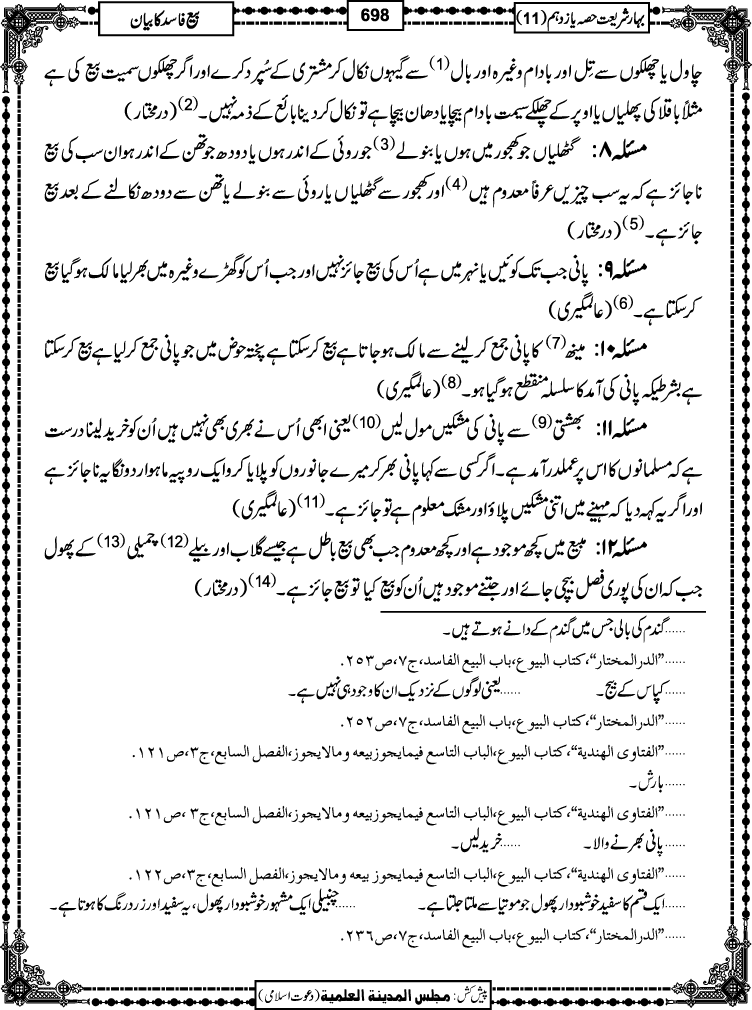 بہار شریعت حصہ یازدہم (11)
698
بیع فاسد کا بیان
چاول یا چھلکوں سے تِل اور بادام وغیرہ اور بال (1) سے گیہوں نکال کر مشتری کے سُپرد کرے اور اگر چھلکوں سمیت بیع کی ہے
مثلاً باقلا کی پھلیاں یا اوپر کے چھلکے سمیت بادام بیچا یا دھان بیچا ہے تو نکال کر دینا بائع کے ذمہ نہیں۔ (2) (درمختار)
مسئلہ ۸: گٹھلیاں جو کھجور میں ہوں یا بنولے (3) جو روئی کے اندر ہوں یا دودھ جو تھن کے اندر ہو ان سب کی بیع
ناجائز ہے کہ یہ سب چیزیں عرفاً معدوم ہیں (4) اور کھجور سے گٹھلیاں یا روئی سے بنولے یا تھن سے دودھ نکالنے کے بعد بیع
جائز ہے۔ (5) (درمختار)
مسئلہ ۹: پانی جب تک کوئیں یا نہر میں ہے اُس کی بیع جائز نہیں اور جب اُس کو گھڑے وغیرہ میں بھر لیا مالک ہوگیا بیع
کرسکتا ہے۔ (6) (عالمگیری)
مسئلہ ۱۰: مینھ (7) کا پانی جمع کر لینے سے مالک ہوجاتا ہے بیع کرسکتا ہے پختہ حوض میں جو پانی جمع کرلیا ہے بیع کرسکتا
ہے بشرطیکہ پانی کی آمد کا سلسلہ منقطع ہوگیا ہو۔ (8) (عالمگیری)
مسئلہ ۱۱: بھشتی (9) سے پانی کی مشکیں مول لیں (10) یعنی ابھی اُس نے بھری بھی نہیں ہیں اُن کو خرید لینا درست
ہے کہ مسلمانوں کا اس پر عملدرآمد ہے۔ اگر کسی سے کہا پانی بھر کر میرے جانوروں کو پلایا کرو ایک روپیہ ماہوار دونگا یہ ناجائز ہے
اور اگر یہ کہہ دیا کہ مہینے میں اتنی مشکیں پلاؤ اور مشک معلوم ہے تو جائز ہے۔ (11) (عالمگیری)
مسئلہ ۱۲: مبیع میں کچھ موجود ہے اور کچھ معدوم جب بھی بیع باطل ہے جیسے گلاب اور بیلے (12) چمیلی (13) کے پھول
جب کہ ان کی پوری فصل بیچی جائے اور جتنے موجود ہیں اُن کو بیع کیا تو بیع جائز ہے۔ (14) (درمختار)
......گندم کی بالی جس میں گندم کے دانے ہوتے ہیں۔
......”الدرالمختار“،کتاب البیوع،باب البیع الفاسد،ج۷،ص۲۵۳.
......کپاس کے بیج۔ ......یعنی لوگوں کے نزدیک ان کا وجود ہی نہیں ہے۔
......”الدرالمختار“،کتاب البیوع،باب البیع الفاسد،ج۷،ص۲۵۲.
......”الفتاوی الھندیة“،کتاب البیوع،الباب التاسع فیمایجوزبیعه ومالایجوز،الفصل السابع،ج۳،ص۱۲۱.
......بارش۔
......”الفتاوی الھندیة“،کتاب البیوع،الباب التاسع فیمایجوزبیعه ومالایجوز،الفصل السابع،ج۳،ص۱۲۱.
......پانی بھرنے والا۔ ......خریدلیں۔
......”الفتاوی الھندیة“،کتاب البیوع،الباب التاسع فیمایجوز بیعه ومالایجوز،الفصل السابع،ج۳،ص۱۲۲.
......ایک قسم کا سفید خوشبودار پھول جو موتیا سے ملتا جلتا ہے۔ ......چنبیلی ایک مشہور خوشبودار پھول، یہ سفید اور زرد رنگ کا ہوتا ہے۔
......”الدرالمختار“،کتاب البیوع،باب البیع الفاسد،ج۷،ص۲۳۶.
پیش کش: مجلس المدینة العلمیة (دعوت اسلامی)